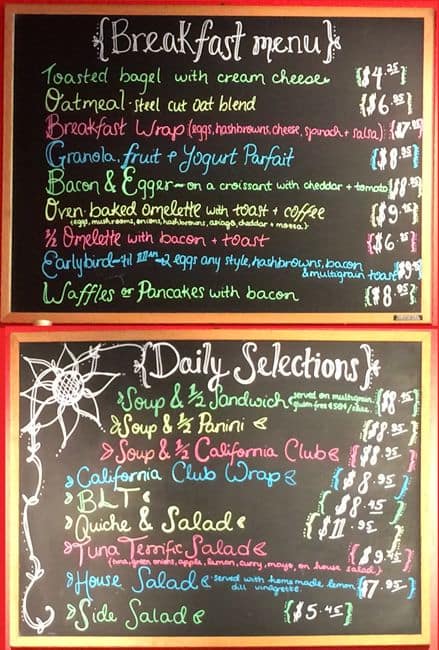 {Breakfast menu}
Toasted bagel with cream cheese {$4.25}
Oatmeal - steel cut oat blend {$6.95}
Breakfast Wrap (eggs, hashbrowns, cheese, spinach + salsa) {$7.95}
Granola, fruit + Yogurt Parfait {$8.95}
Bacon & Egger ~ on a croissant with cheddar + tomato {$8.95}
Oven baked omelette with toast + coffee {$9.95}
(eggs, mushrooms, onions, hashbrowns, asiago, cheddar + mozza)
½ Omelette with bacon + toast {$6.95}
Earlybird - til 2 eggs any style, hashbrowns, bacon
& multigrain toast
Waffles or Pancakes with bacon {$8.95}
{Daily Selections}
Soup & ½ Sandwich served on multigrain {$8.95}
gluten free
Soup & ½ Panini {$8.95}
Soup & ½ California Club {$8.95}
California Club Wrap {$8.95}
BLT {$8.45}
Quiche & Salad {$11.95}
Tuna Terrific Salad
(tuna, green onions, apple, lemon, curry, mayo, on house salad)
House Salad served with homemade lemon {$7.95}
dill vinagrette
Side Salad {$5.45}